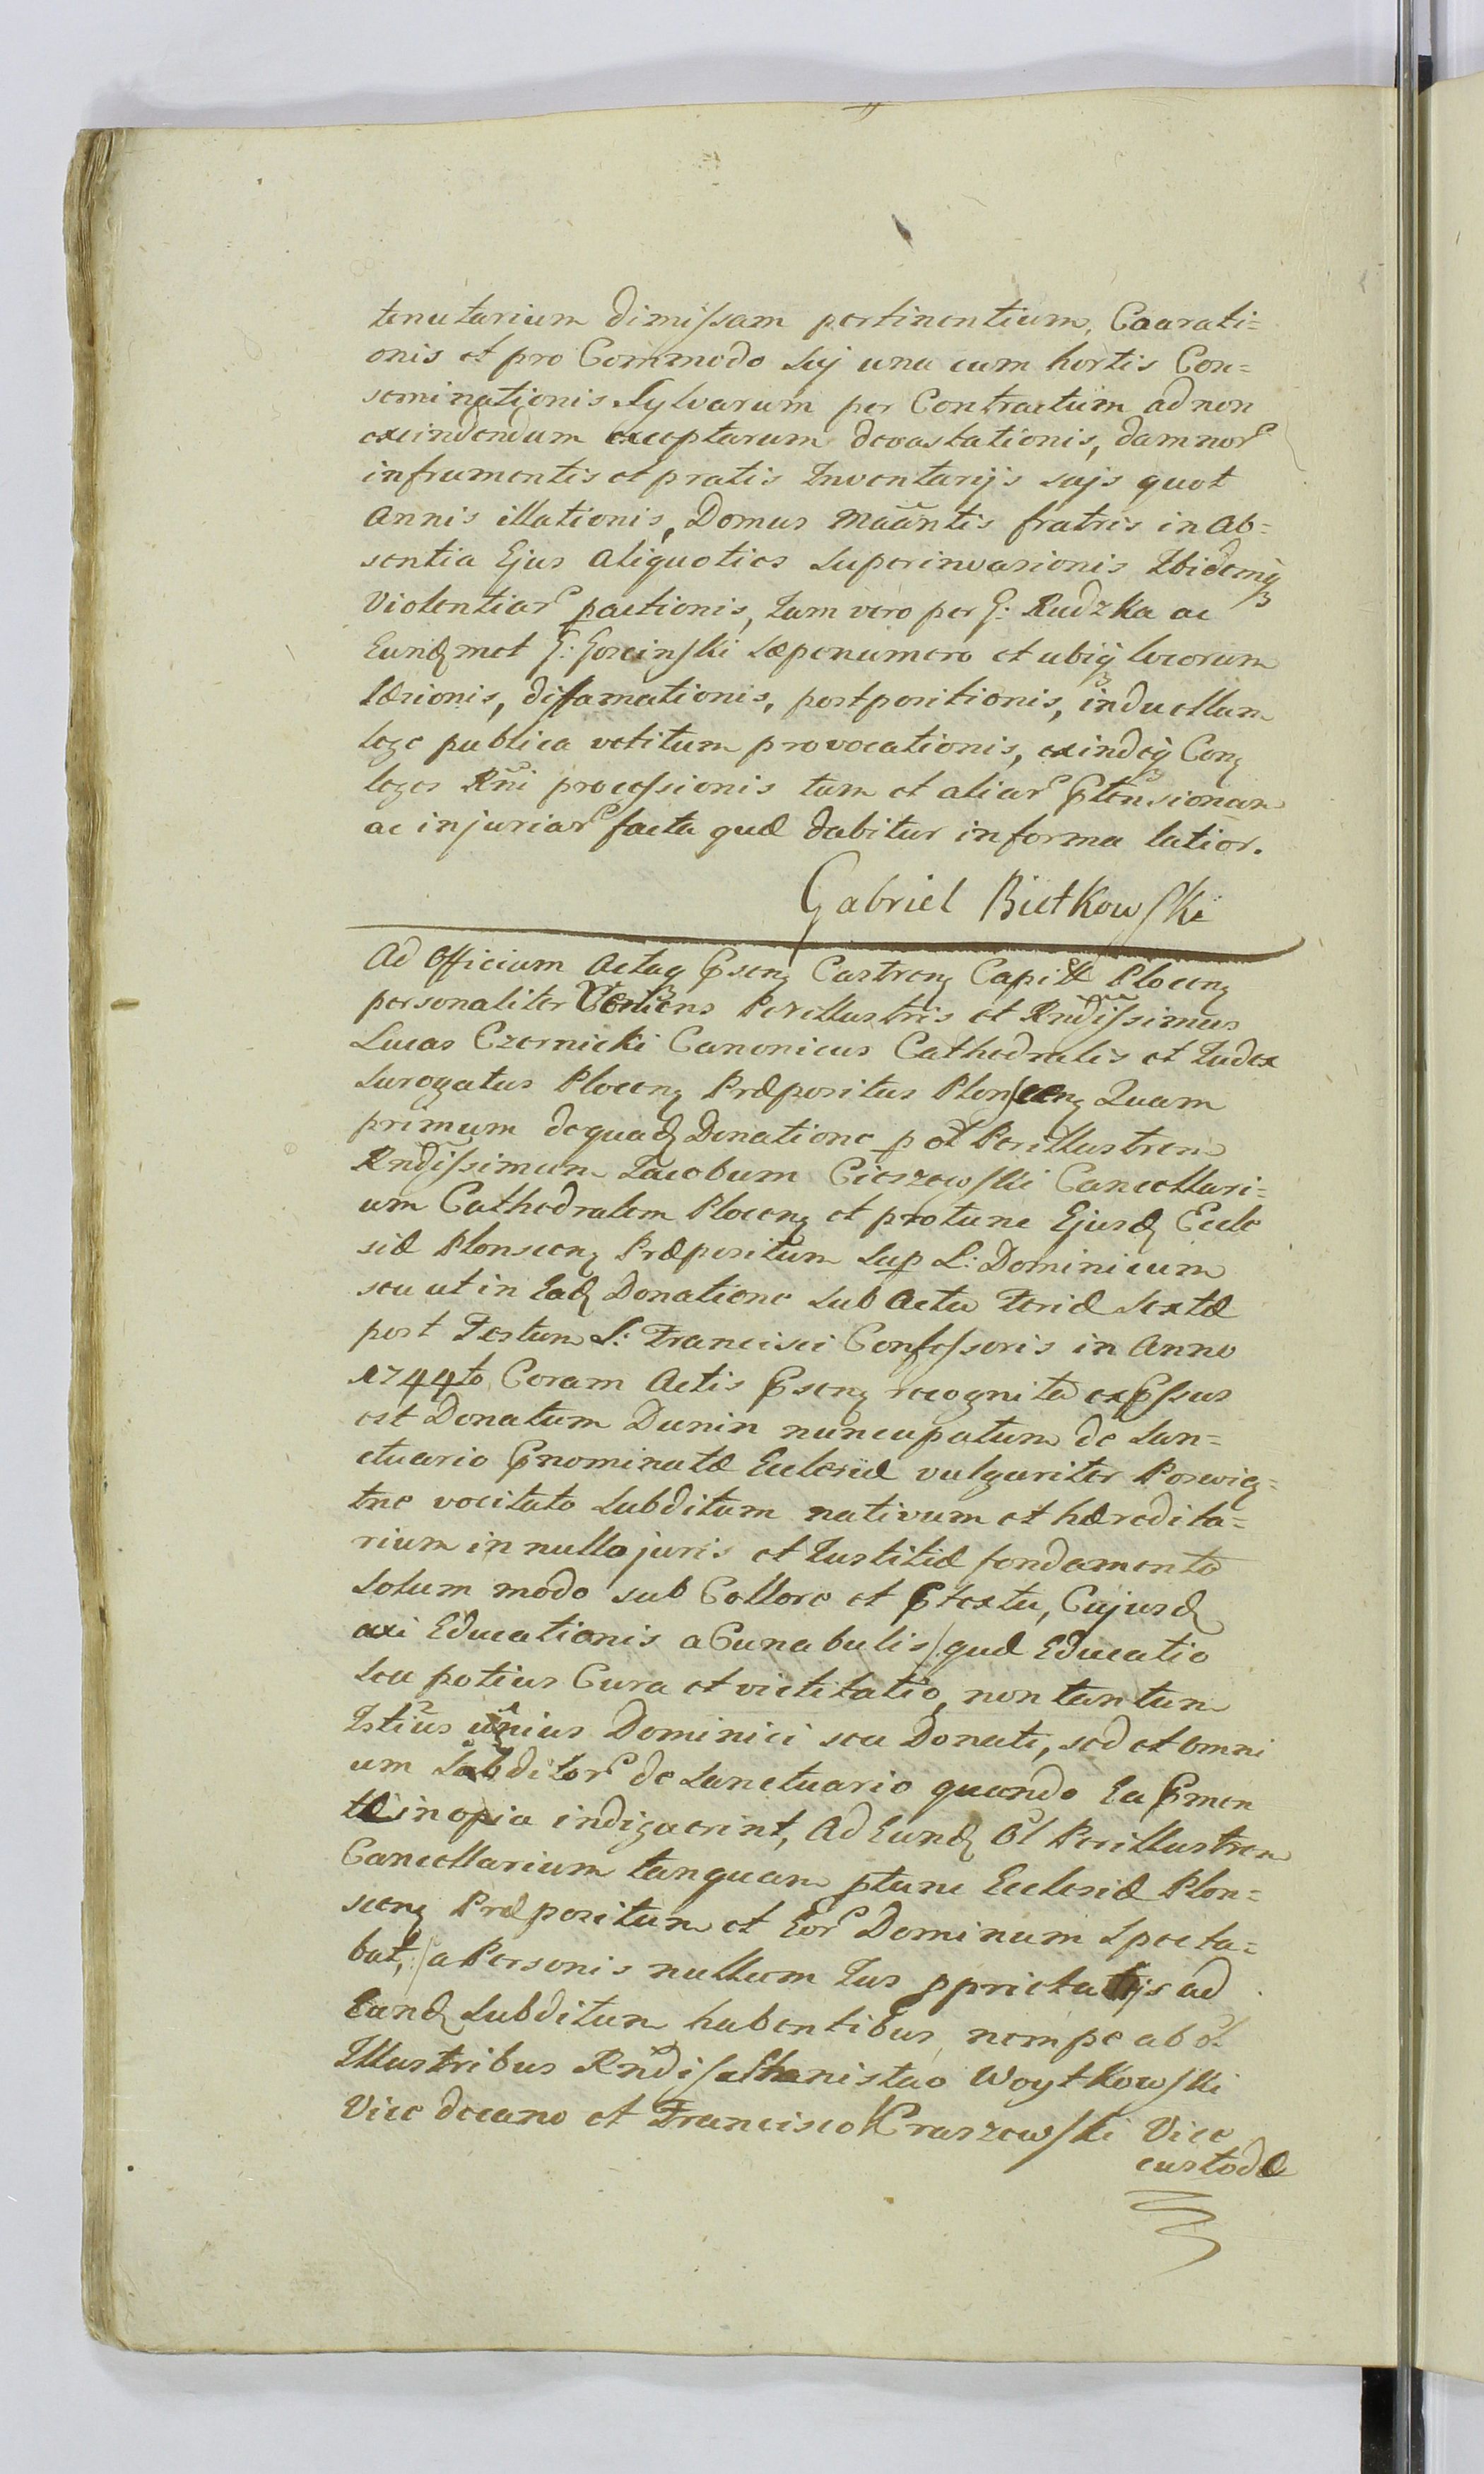 tenutarium dimissam pertinentium, Coarati=
onis et pro Commodo suj una cum hortis Con=
seminationis Sylvarum per Contractum ad non
excindendum exceptarum devastationis, damnor
infrumentis et pratis Inventarijs sujs quot
Annis illationis, Domus Maãntis fratris in Ab=
sentia Ejus Aliquoties superinvasionis Ibidemq
Violentiar pactionis, Tam vero per G: Rudzka ac
Eundmet G: Gorcinski sæpenumero et ubiq locorum
læsionis, diffamationis, postpositionis, in duellum
lege publica vetitum provocationis, exindeq Con
leges Rni processionis tum et aliar Ptensionum
ac injuriar facta quæ dabitur in forma latior.
Gabriel Bietkowski
Ad Officium Actaq Psen Castren Capitl Plocen
personaliter Veniens Perillustris et Rndissimus
Lucas Czernicki Canonicus Cathedralis et Iudex
Surogatus Plocen Præpositus Plonscen Quam
primum de quad Donatione p ol Perillustrem
Rndissimum Iacobum Cieszewski Cancellari=
um Cathedralem Plocen et protunc Ejusd Eccle
siæ Plonscen Præpositum Sup L: Dominicum
seu ut in Ead Donatione sub Actu Feriæ Sextæ
post Festum S: Francisci Confessoris in Anno
1744to Coram Actis Psen recognita exPssus
est Donatum Dunin nuncupatum de San=
ctuario Pnominatæ Ecclesiæ vulgariter Poswię=
tne vocitato Subditum nativum et hæredita=
rium in nullo juris et Iustitiæ fondamento
Solum modo sub Collore et Ptextu, Cujusd
axi Educationis a Cunabulis /quæ Educatio
seu potius Cura et victitatio, non tantum
Istius unius Dominici seu Donati, sed et omni
um Subditor de Sanctuario quando Ea Pmen
te inopia indiguerint, Ad Eund Ol Perillustrem
Cancellarium tanquam ptunc Ecclesiæ Plon=
scen Præpositum et Eor Dominum specta=
bat,/ a Personis nullum Ius pprietatijs ad
Eund Subditum habentibus, nempe ab ol
Illustribus Rndiss Stanislao Woytkowski
Vice decano et Francisco Kraszewski Vice
custodæ